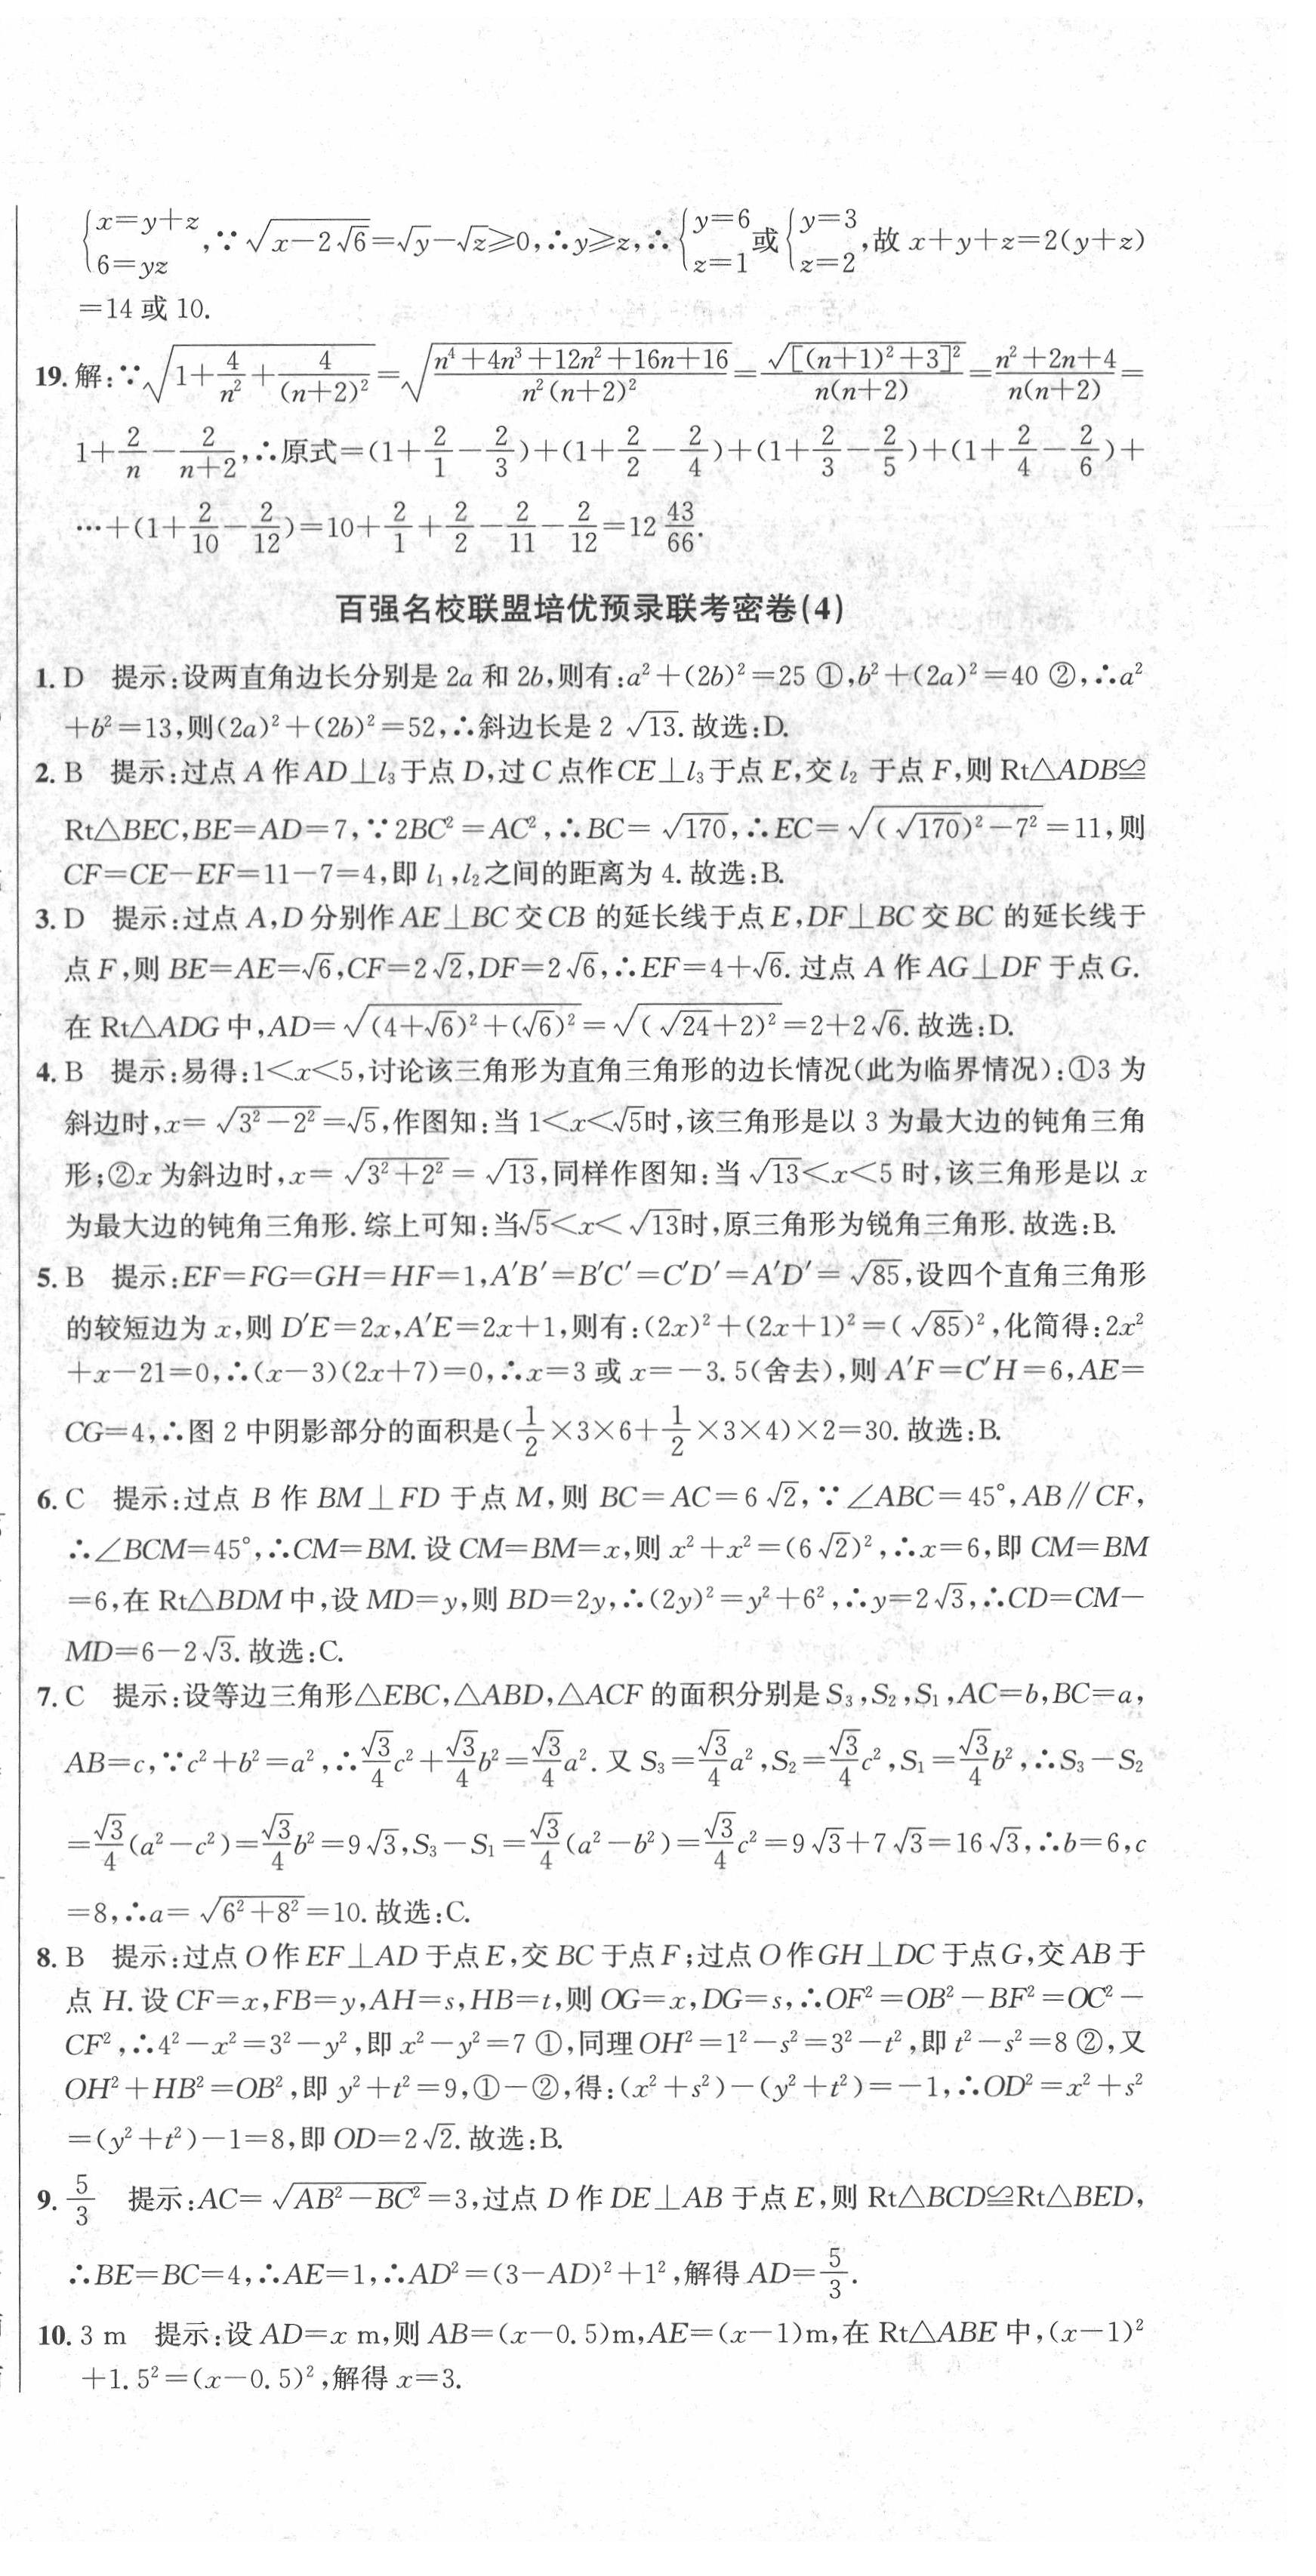 {x=y+z, 6=yz ,∵√(x-2√6)=√y-√z≥0,∴y≥z,∴{y=6, z=1 或{y=3, z=2 ,故 x+y+z=2(y+z)
=14 或 10.
19. 解:∵√(1+4/n²+4/(n+2)²)=√((n⁴+4n³+12n²+16n+16)/(n²(n+2)²))=√([(n+1)²+3]²)/(n(n+2))=(n²+2n+4)/(n(n+2))=
1+2/n-2/(n+2),∴原式=(1+2/1-2/3)+(1+2/2-2/4)+(1+2/3-2/5)+(1+2/4-2/6)+
…+(1+2/10-2/12)=10+2/1+2/2-2/11-2/12=12 43/66.
百强名校联盟培优预录联考密卷(4)
1. D 提示:设两直角边长分别是 2a 和 2b,则有:a²+(2b)²=25 ①,b²+(2a)²=40 ②,∴a²
+b²=13,则(2a)²+(2b)²=52,∴斜边长是 2√13. 故选:D.
2. B 提示:过点 A 作 AD⊥l₃于点 D,过 C 点作 CE⊥l₃于点 E,交 l₂ 于点 F,则 Rt△ADB≌
Rt△BEC,BE=AD=7,∵2BC²=AC²,∴BC=√170,∴EC=√((√170)²-7²)=11,则
CF=CE-EF=11-7=4,即 l₁,l₂之间的距离为 4. 故选:B.
3. D 提示:过点 A,D 分别作 AE⊥BC 交 CB 的延长线于点 E,DF⊥BC 交 BC 的延长线于
点 F,则 BE=AE=√6,CF=2√2,DF=2√6,∴EF=4+√6. 过点 A 作 AG⊥DF 于点 G.
在 Rt△ADG 中,AD=√((4+√6)²+(√6)²)=√((√24+2)²)=2+2√6. 故选:D.
4. B 提示:易得:1<x<5,讨论该三角形为直角三角形的边长情况(此为临界情况):①3 为
斜边时,x=√(3²-2²)=√5,作图知:当 1<x<√5时,该三角形是以 3 为最大边的钝角三角
形;②x 为斜边时,x=√(3²+2²)=√13,同样作图知:当√13<x<5 时,该三角形是以 x
为最大边的钝角三角形. 综上可知:当√5<x<√13时,原三角形为锐角三角形. 故选:B.
5. B 提示:EF=FG=GH=HF=1,A′B′=B′C′=C′D′=A′D′=√85,设四个直角三角形
的较短边为 x,则 D′E=2x,A′E=2x+1,则有:(2x)²+(2x+1)²=(√85)²,化简得:2x²
+x-21=0,∴(x-3)(2x+7)=0,∴x=3 或 x=-3.5(舍去),则 A′F=C′H=6,AE=
CG=4,∴图 2 中阴影部分的面积是(1/2×3×6+1/2×3×4)×2=30. 故选:B.
6. C 提示:过点 B 作 BM⊥FD 于点 M,则 BC=AC=6√2,∵∠ABC=45°,AB∥CF,
∴∠BCM=45°,∴CM=BM. 设 CM=BM=x,则 x²+x²=(6√2)²,∴x=6,即 CM=BM
=6,在 Rt△BDM 中,设 MD=y,则 BD=2y,∴(2y)²=y²+6²,∴y=2√3,∴CD=CM-
MD=6-2√3. 故选:C.
7. C 提示:设等边三角形△EBC,△ABD,△ACF 的面积分别是 S₃,S₂,S₁,AC=b,BC=a,
AB=c,∵c²+b²=a²,∴√3/4c²+√3/4b²=√3/4a². 又 S₃=√3/4a²,S₂=√3/4c²,S₁=√3/4b²,∴S₃-S₂
=√3/4(a²-c²)=√3/4b²=9√3,S₃-S₁=√3/4(a²-b²)=√3/4c²=9√3+7√3=16√3,∴b=6,c
=8,∴a=√(6²+8²)=10. 故选:C.
8. B 提示:过点 O 作 EF⊥AD 于点 E,交 BC 于点 F;过点 O 作 GH⊥DC 于点 G,交 AB 于
点 H. 设 CF=x,FB=y,AH=s,HB=t,则 OG=x,DG=s,∴OF²=OB²-BF²=OC²-
CF²,∴4²-x²=3²-y²,即 x²-y²=7 ①,同理 OH²=1²-s²=3²-t²,即 t²-s²=8 ②,又
OH²+HB²=OB²,即 y²+t²=9,①-②,得:(x²+s²)-(y²+t²)=-1,∴OD²=x²+s²
=(y²+t²)-1=8,即 OD=2√2. 故选:B.
9. 5/3 提示:AC=√(AB²-BC²)=3,过点 D 作 DE⊥AB 于点 E,则 Rt△BCD≌Rt△BED,
∴BE=BC=4,∴AE=1,∴AD²=(3-AD)²+1²,解得 AD=5/3.
10. 3 m 提示:设 AD=x m,则 AB=(x-0.5)m,AE=(x-1)m,在 Rt△ABE 中,(x-1)²
+1.5²=(x-0.5)²,解得 x=3.